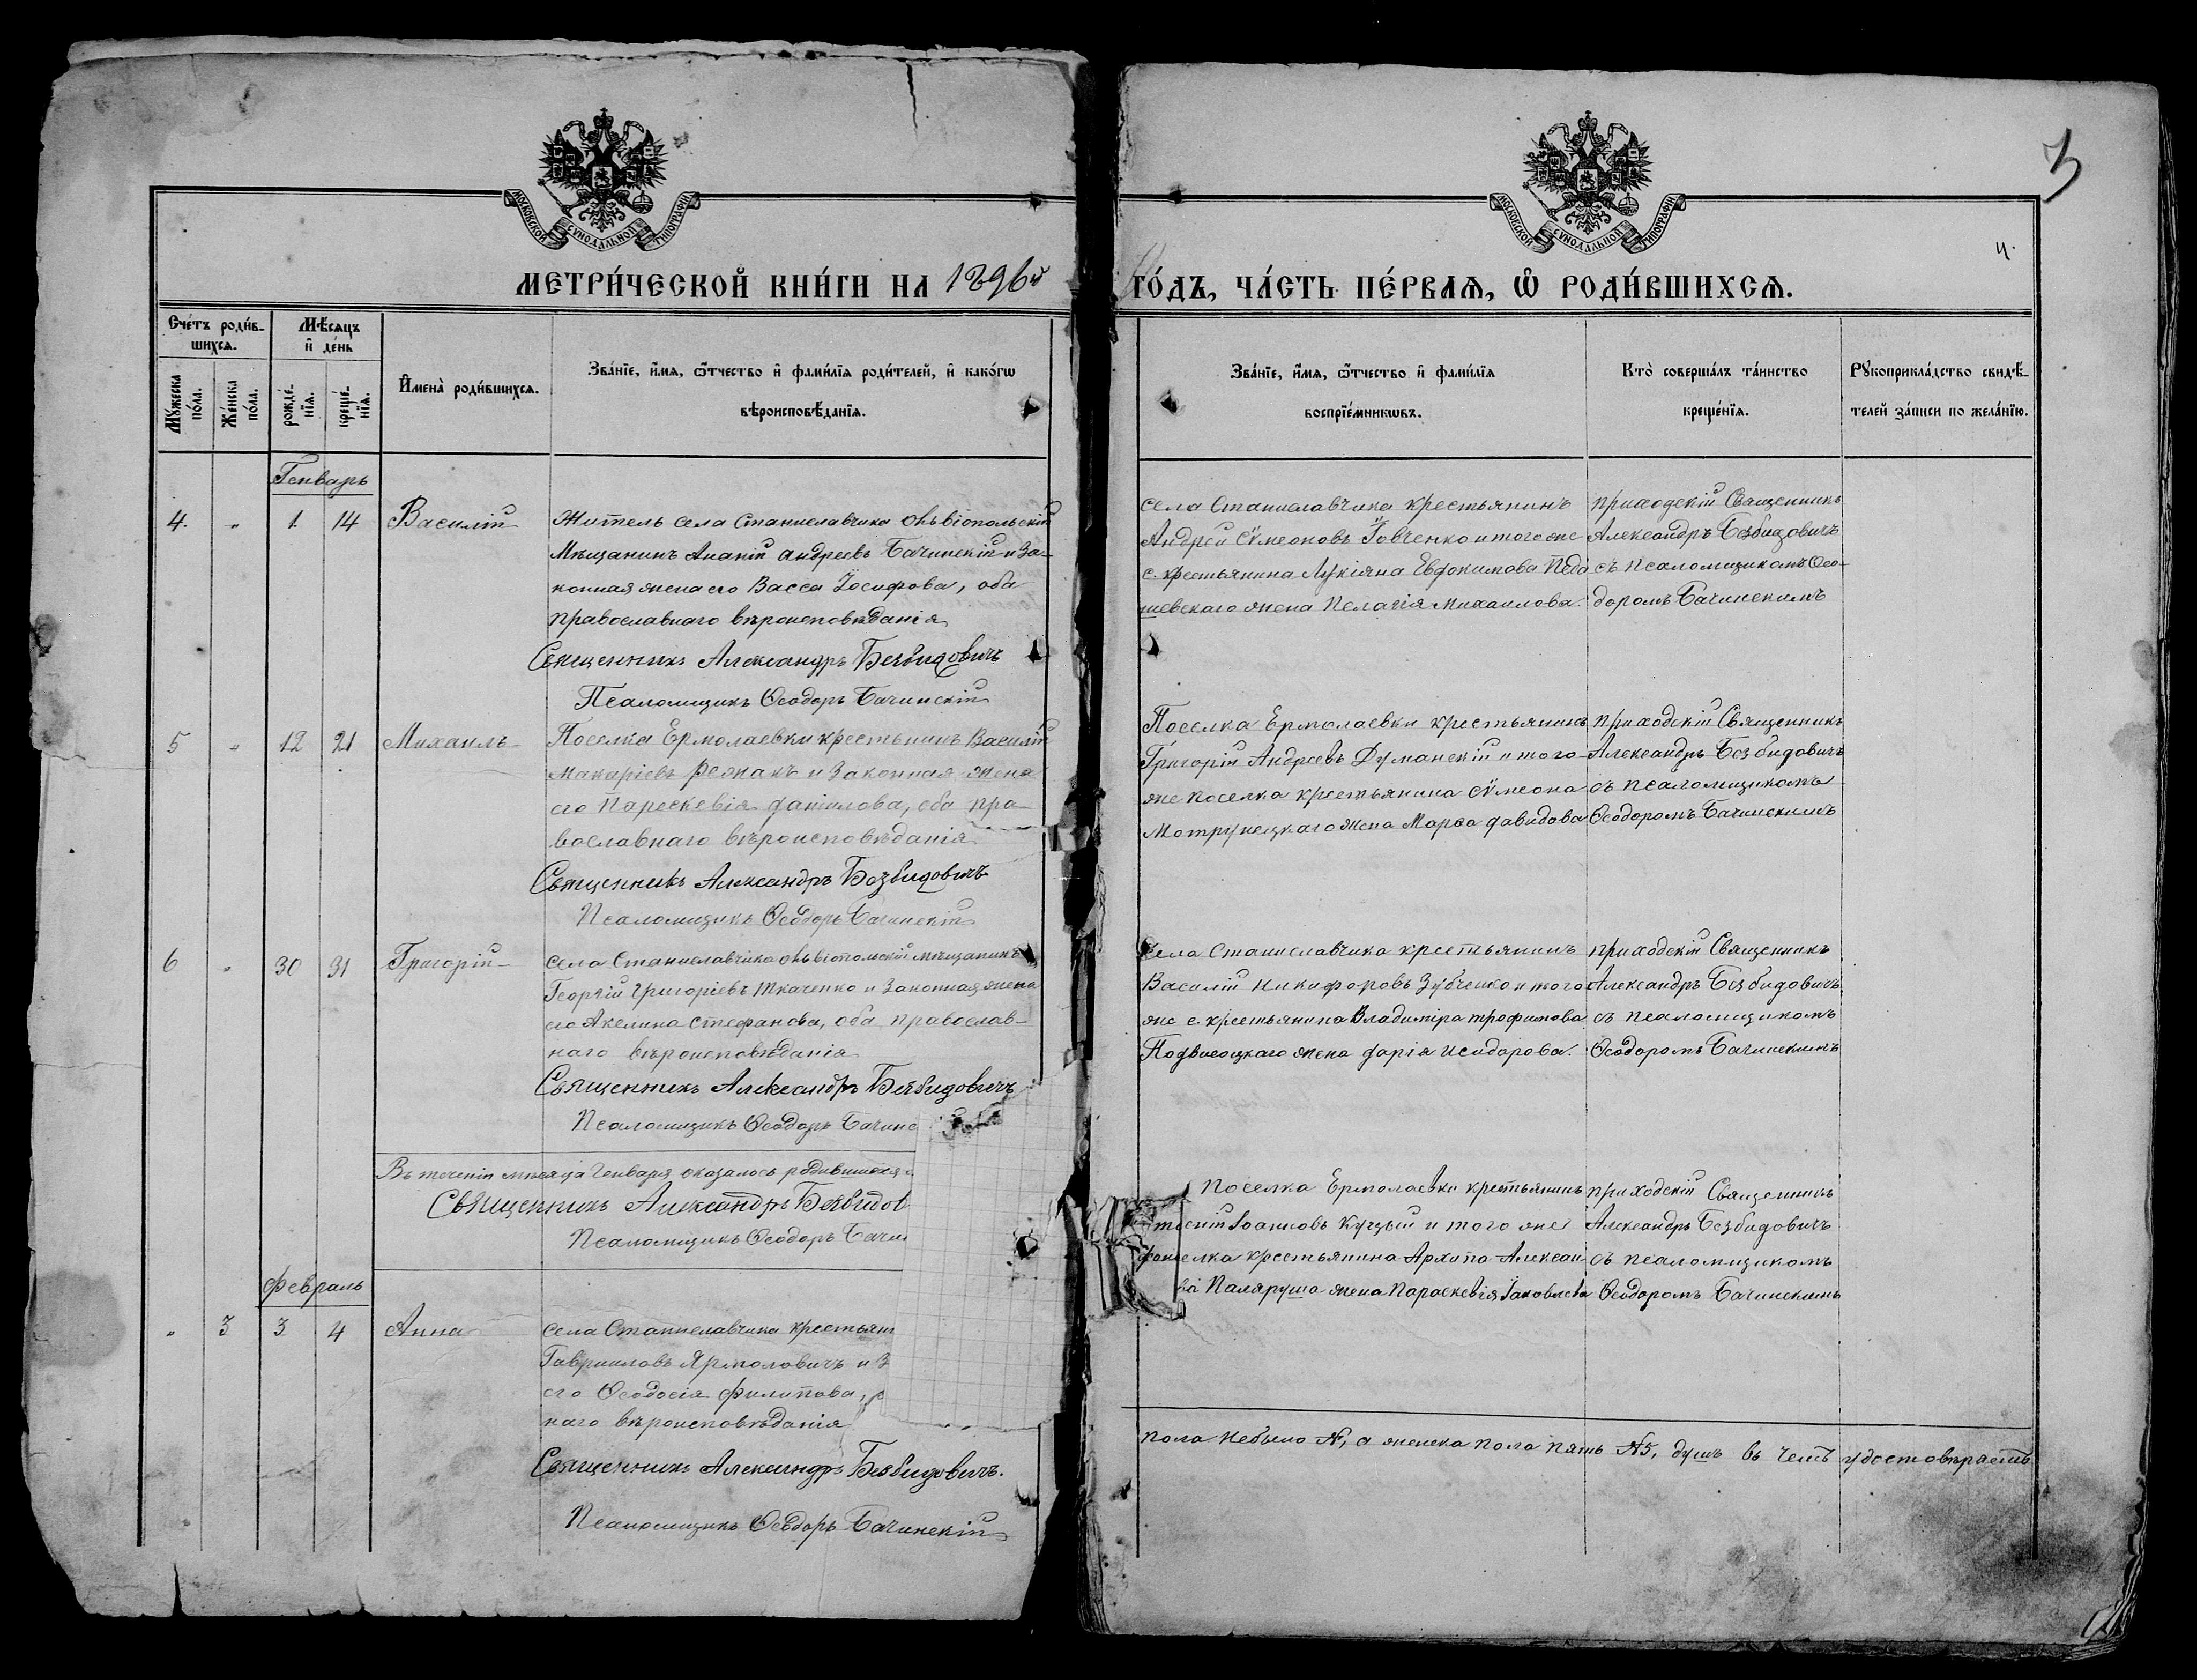 3
МОСКОВСКОЙ СУНОДАЛЬНОЙ ТИПОГРАФІИ
МОСКОВСКОЙ СУНОДАЛЬНОЙ ТИПОГРАФІИ
4.
МЕТРИ́ЧЕСКОЙ КНИ́ГИ НА 1896й
ГО́ДЪ, ЧА́СТЬ ПЕ́РВАЯ, Ѡ҆ РОДИ́ВШИХСЯ.
Сче́тъ роди́в-
шихся.
Мѣ́сяцъ
и҆ де́нь
Мꙋжеска по́ла.
Же́нска по́ла.
рожде́нїя.
креще́нїя.
И҆мена̀ роди́вшихся.
Зва́нїе, и҆́мя, ѻ҆́тчество и҆ фами́лїя роди́телей, и҆ како́гѡ
вѣроисповѣ́данїя.
Зва́нїе, и҆́мя, ѻ҆́тчество и҆ фами́лїя
воспрїе́мникѡвъ.
Кто̀ соверша́лъ та́инство
креще́нїя.
Рꙋкоприкла́дство свидѣ́-
телей за́писи по жела́нїю.
Генварь
4. „ 1. 14 Василій
Житель села Станиславчика Ольвіопольскій
Мѣщанинъ Ананій Андреевъ Бачинскій и за-
конная жена его Васса Іосифова, оба
православнаго вѣроисповѣданія
Священникъ Александръ Безвидовичъ
Псаломщикъ Ѳеодоръ Бачинскій
села Станиславчика крестьянинъ
Андрей Сѵмеоновъ Іовченко и того же
с. крестьянина Лукіяна Евдокимова Педа
шевскаго жена Пелагія Михаилова.
приходскій Священникъ
Александръ Безвидовичъ
съ псаломщикомъ Ѳео-
доромъ Бачинскимъ
5 „ 12 21 Михаилъ
Поселка Ермолаевки крестьянинъ Василій
Макаріевъ и законная жена
его Параскевія Даніилова, оба пра-
вославнаго вѣроисповѣданія
Священникъ Александръ Безвидовичъ
Псаломщикъ Ѳеодоръ Бачинскій
Поселка Ермолаевки крестьянинъ
Григорій Андреевъ Думанскій и того-
же поселка крестьянина Сѵмеона
жена Марѳа Давидова
приходскій Священникъ
Александръ Безвидовичъ
съ псаломщикомъ
Ѳеодоромъ Бачинскимъ
6 „ 30 31 Григорій
села Станиславчика мѣщанинъ
Георгій Григоріевъ Ткаченко и законная жена
его Акелина Стефанова, оба православ-
наго вѣроисповѣданія
Священникъ Александръ Безвидовичъ
Псаломщикъ Ѳеодоръ Бачинс
села Станиславчика крестьянинъ
Василій Никифоровъ Зубченко и того
же с. крестьянина Владиміра Трофимова
Подвысоцкаго жена Дарія Исидорова.
приходскій Священникъ
Александръ Безвидовичъ
съ псаломщикомъ
Ѳеодоромъ Бачинскимъ
Въ теченіи мѣсяца Генваря оказалось родившихся
Священникъ Александръ Безвидов
Псаломщикъ Ѳеодоръ Бачи
Февраль
„ 3 3 4 Анна
села Станиславчика крестьян
Гавриловъ Ярмоловичъ и з
его Ѳеодосія Филипова,
наго вѣроисповѣданія
Священникъ Александръ Безвидовичъ.
Псаломщикъ Ѳеодоръ Бачинскій
Поселка Ермолаевки крестьянинъ
Іоанновъ Куцый и того же
поселка крестьянина Архипа Алексан
ва Паляруша жена Параскевія Іаковлева
приходскій Священникъ
Александръ Безвидовичъ
съ псаломщикомъ
Ѳеодоромъ Бачинскимъ
пола небыло №, а женска пола пять №5, душъ въ чемъ удостовѣряетъ